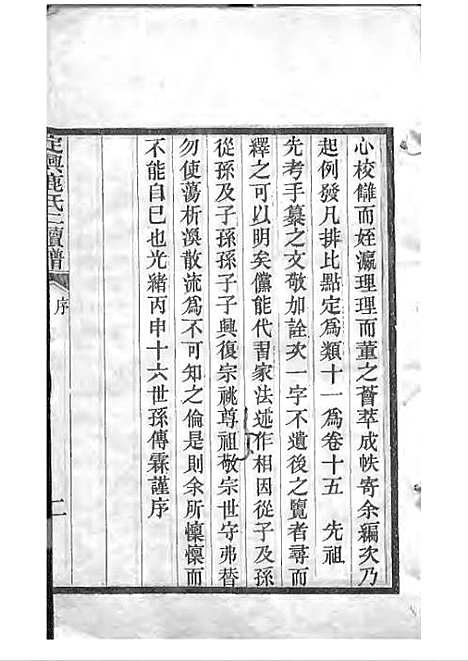 心校讎而姪瀛理理而董之薈萃成帙寄余編次乃
起例發凡排比點定爲類十一爲卷十五　先祖
先考手纂之文敬加詮次一字不遺後之覽者尋而
釋之可以明矣儻能代習家法述作相因從子及孫
從孫及子孫孫子子興復宗祧尊祖敬宗世守弗替
勿使蕩析渙散流爲不可知之倫是則余所懍懍而
不能自已也光緒丙申十六世孫傳霖謹序
定興鹿氏二續譜
序
二